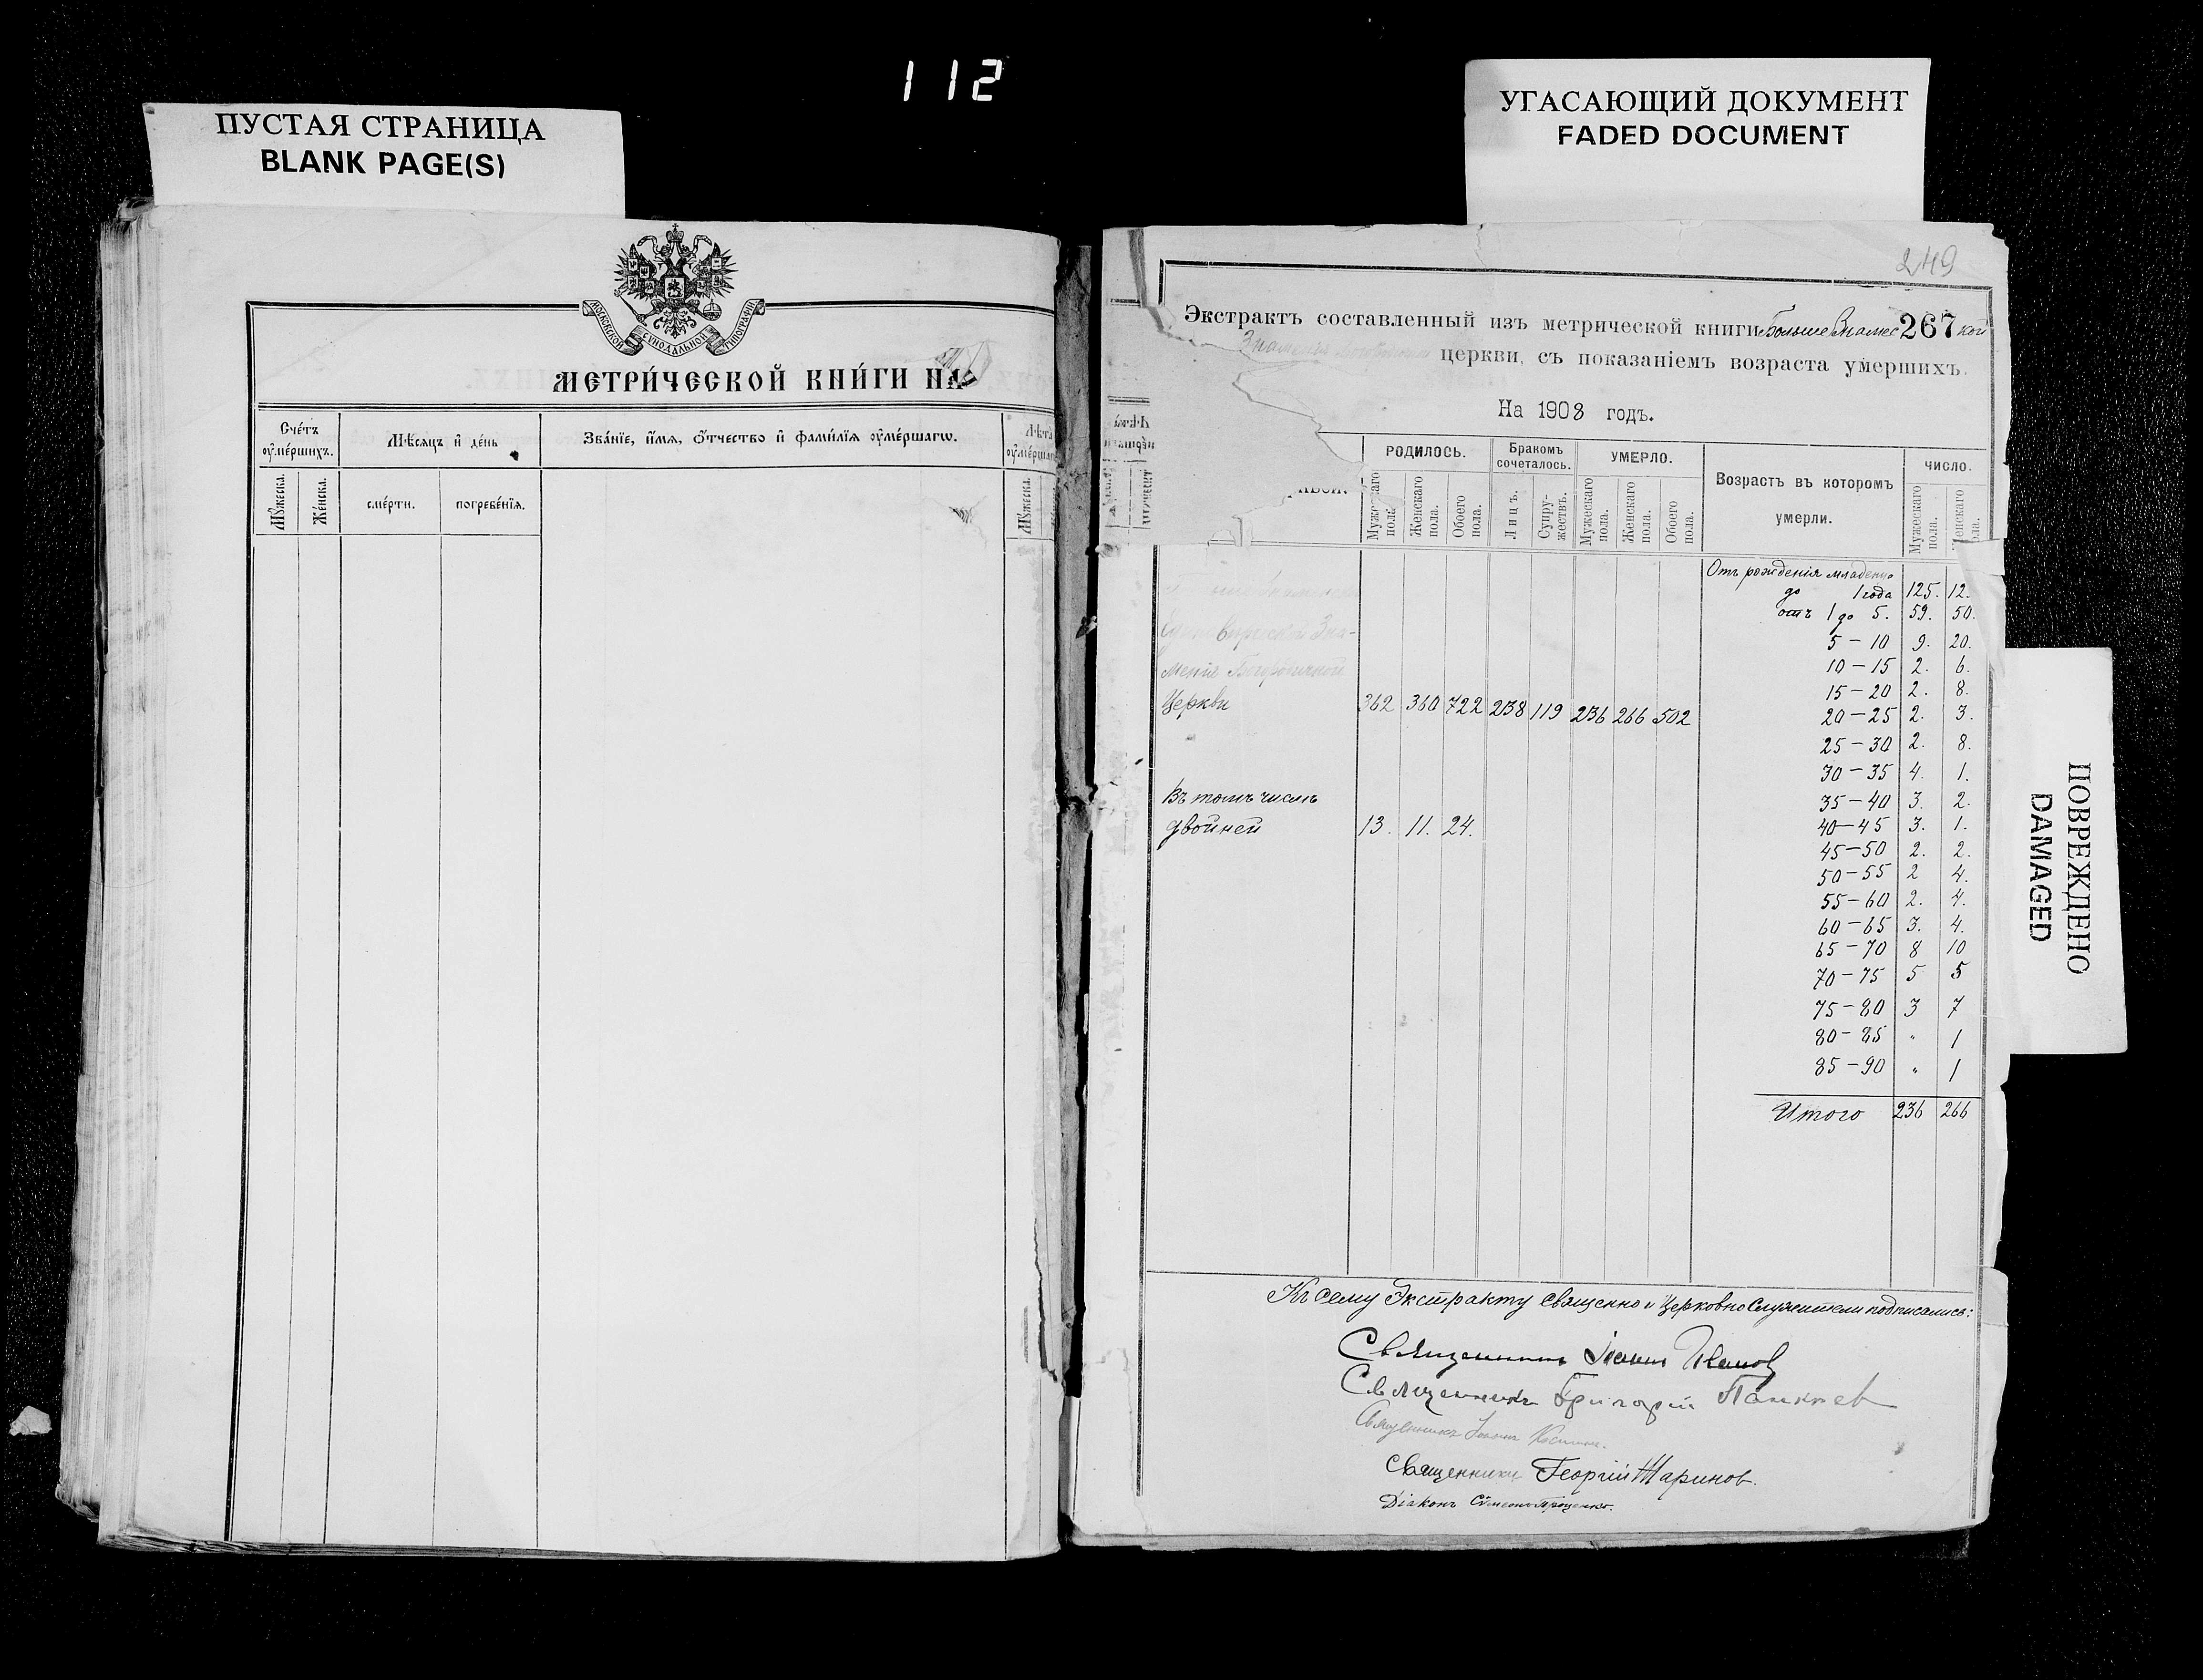 112
ПУСТАЯ СТРАНИЦА
BLANK PAGE(S)
УГАСАЮЩИЙ ДОКУМЕНТ
FADED DOCUMENT
МОСКОВСКОЙ СѴНОДАЛЬНОЙ ТИПОГРАФІИ
МЕТРИ́ЧЕСКОЙ КНИ́ГИ НА
Сче́тъ ᲂу҆ме́ршихъ.
Мѣсяцъ и҆ де́нь
Зва́нїе, и҆́мѧ, ѻ҆́тчество и҆ фами́лїѧ ᲂу҆ме́ршагѡ.
Лѣта ᲂу҆ме́ршаг
Мꙋ́жеска.
Же́нска.
сме́рти.
погребе́нїѧ.
Мꙋ́жеска.
249
Экстрактъ составленный изъ метрической книги Больше Знаменс267кой
церкви, съ показаніемъ возраста умершихъ.
На 1908 годъ.
РОДИЛОСЬ.
Бракомъ сочеталось.
УМЕРЛО.
Возрастъ въ которомъ умерли.
ЧИСЛО.
Мужескаго пола.
Женскаго пола.
Обоего пола.
Лицъ.
Супружествъ.
Мужескаго пола.
Женскаго пола.
Обоего пола.
Мужескаго пола.
Женскаго пола.
Отъ рожденія младенц
до 1 года 125. 12.
отъ 1 до 5. 59. 50.
5 — 10 9. 20.
Зна-
10 — 15 2. 6.
менія Богородичной
15 — 20 2. 8.
Церкви 362 360 722 238 119 236 266 502
20 — 25 2. 3.
25 — 30 2. 8.
30 — 35 4. 1.
Въ томъ числѣ
35 — 40 3. 2.
двойней 13. 11. 24.
40 — 45 3. 1.
45 — 50 2. 2.
50 — 55 2 4.
55 — 60 2. 4.
60 — 65 3. 4.
65 — 70 8 10
70 — 75 5 5
75 — 80 3 7
80 — 85 " 1
85 — 90 " 1
Итого 236 266
Къ сему Экстракту Священно и Церковно Служители подписались:
Священникъ Іоаннъ Иванов
Священникъ Григорій
Священникъ Іоаннъ
Священникъ Георгій Жаринов.
Діаконъ Сѵмеонъ Проценко.
ПОВРЕЖДЕНО
DAMAGED